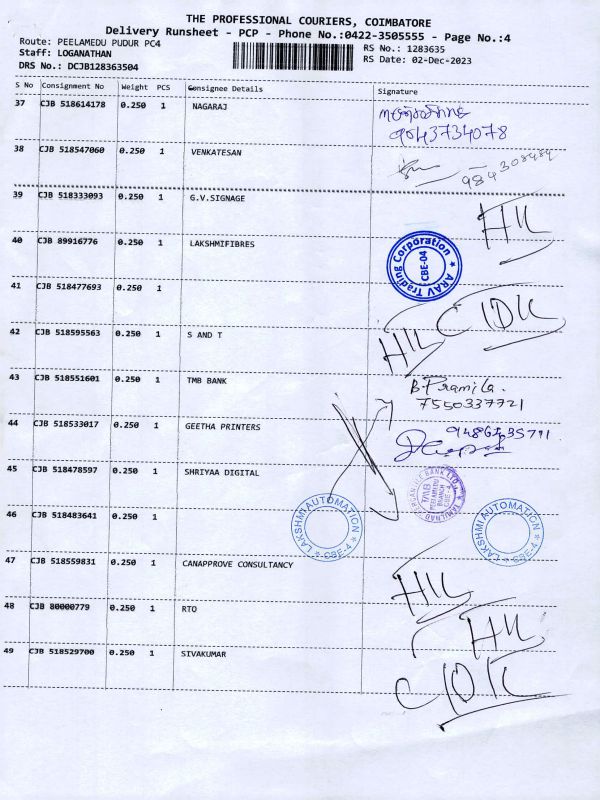 THE PROFESSIONAL COURIERS, COIMBATORE
Delivery Runsheet - PCP - Phone No.:0422-3505555 - Page No.:4
Route: PEELAMEDU PUDUR PC4
RS No.: 1283635
Staff: LOGANATHAN
RS Date: 02-Dec-2023
DRS No.: DCJB128363504
S No Consignment No Weight PCS Consignee Details Signature
37 CJB 518614178 0.250 1 NAGARAJ
9043734078
38 CJB 518547060 0.250 1 VENKATESAN
39 CJB 518333093 0.250 1 G.V.SIGNAGE
40 CJB 89916776 0.250 1 LAKSHMIFIBRES
ARAV Trading Corporation
CBE-04
41 CJB 518477693 0.250 1
42 CJB 518595563 0.250 1 S AND T
43 CJB 518551601 0.250 1 TMB BANK
B. Pramila.
7550337721
44 CJB 518533017 0.250 1 GEETHA PRINTERS
45 CJB 518478597 0.250 1 SHRIYAA DIGITAL
TMB
46 CJB 518483641 0.250 1
LAKSHMI AUTOMATION
CBE-4
LAKSHMI AUTOMATION
CBE-4
47 CJB 518559831 0.250 1 CANAPPROVE CONSULTANCY
48 CJB 80000779 0.250 1 RTO
49 CJB 518529700 0.250 1 SIVAKUMAR